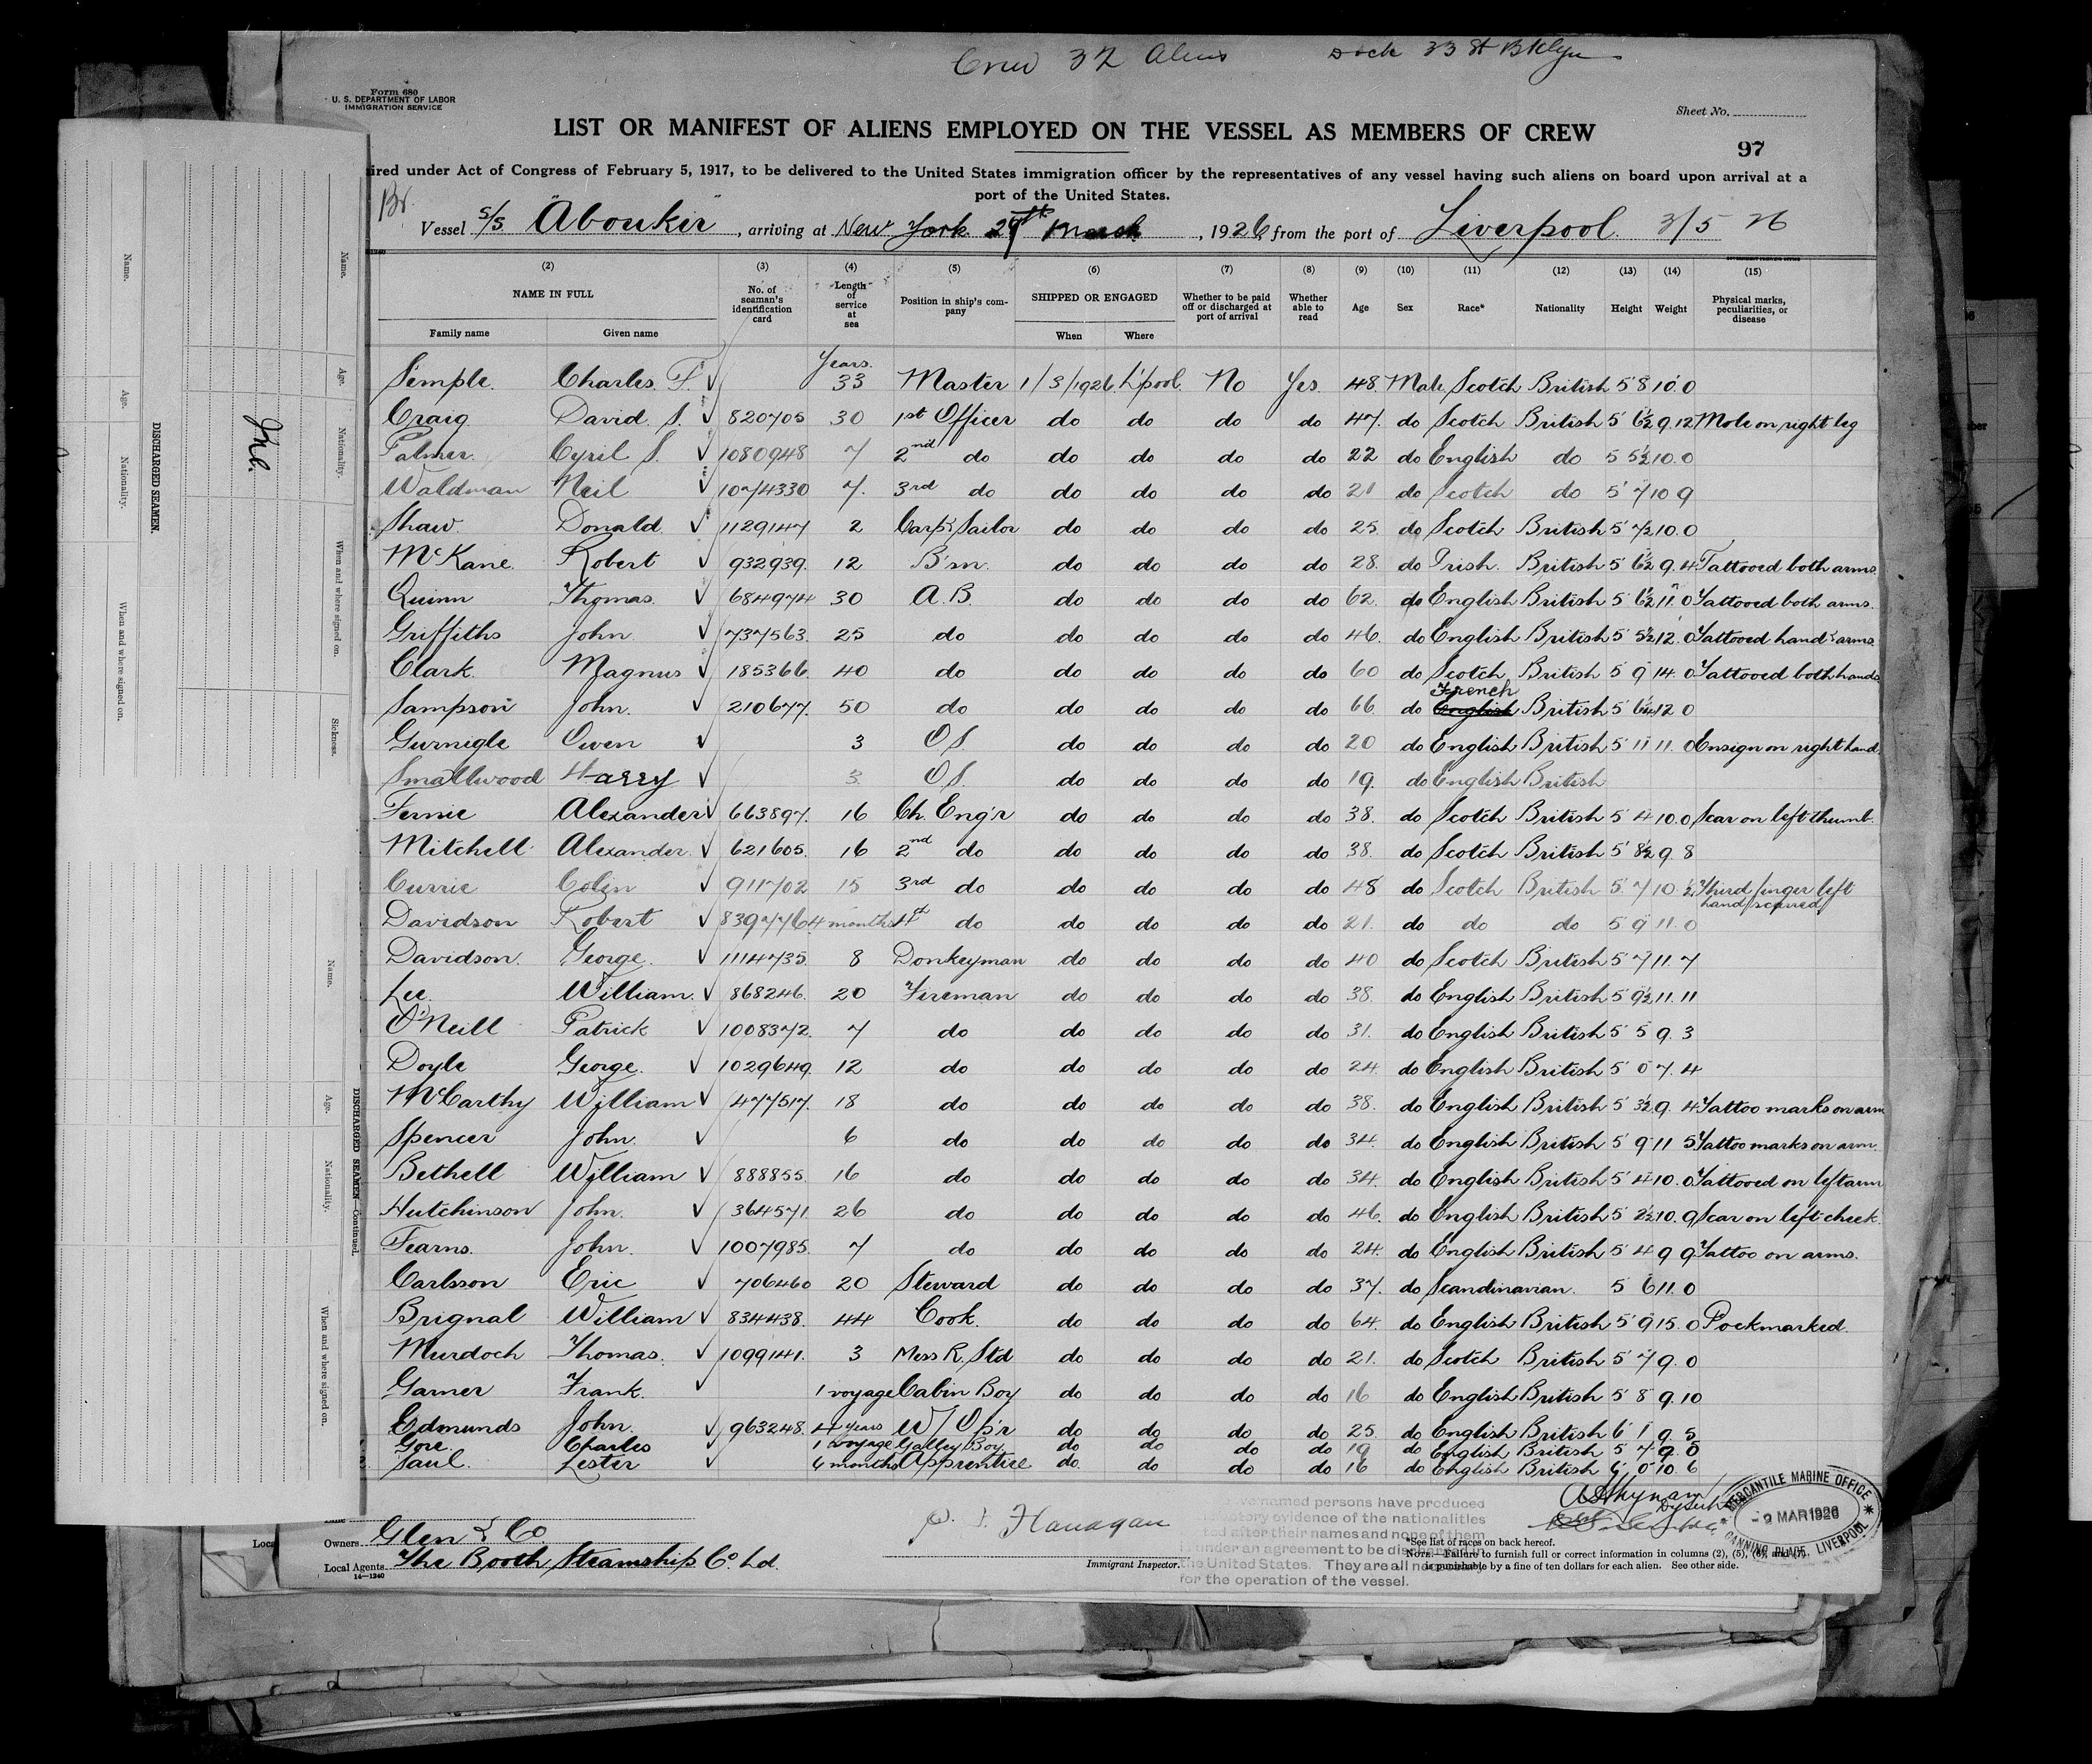 Crew 32 Aliens Dock 33 St Bklyn
Form 680
U. S. DEPARTMENT OF LABOR
IMMIGRATION SERVICE
Sheet No.
LIST OR MANIFEST OF ALIENS EMPLOYED ON THE VESSEL AS MEMBERS OF CREW
97
ired under Act of Congress of February 5, 1917, to be delivered to the United States immigration officer by the representatives of any vessel having such aliens on board upon arrival at a
port of the United States.
Br.
Vessel S/S. "Aboukir", arriving at New York 29th March, 1926 from the port of Liverpool 3/5 26
(2) (3) (4) (5) (6) (7) (8) (9) (10) (11) (12) (13) (14) (15)
NAME IN FULL No. of seaman's identification card Length of service at sea Position in ship's company SHIPPED OR ENGAGED Whether to be paid off or discharged at port of arrival Whether able to read Age Sex Race* Nationality Height Weight Physical marks, peculiarities, or disease
Family name Given name When Where
Years.
Semple. Charles. F. ✓ 33 Master 1/3/1926. L'pool. No Yes. 48. Male. Scotch British 5 8 10.0
Craig David. S. ✓ 820705 30 1st Officer do do do do 47. do Scotch British 5 6½ 9.12 Mole on right leg
Palmer. Cyril S. ✓ 1080948 7 2nd do do do do do 22 do English do 5 5½ 10.0
Waldman Neil ✓ 1074330 7. 3rd do do do do do 21 do Scotch do 5 7 10 9
Shaw. Donald. ✓ 1129147 2 Carp'r Sailor do do do do 25. do Scotch British 5 7½ 10.0
McKane. Robert ✓ 932939. 12 B'm. do do do do 28. do Irish. British 5 6½ 9.4 Tattooed both arms.
Quinn Thomas. ✓ 684974 30 A.B. do do do do 62. do English British 5 6½ 11.0 Tattooed both arms.
Griffiths John ✓ 737563. 25 do do do do do 46. do English British 5 5½ 12.0 Tattooed hand & arms.
Clark. Magnus ✓ 185366. 40 do do do do do 60 do Scotch British 5 9 14.0 Tattooed both hands
French
Sampson John. ✓ 210677. 50 do do do do do 66. do English British 5 6¼ 12 0
Gurnigle Owen ✓ 3 O.S. do do do do 20 do English British 5 11 11.0 Ensign on right hand.
Smallwood Harry ✓ 3 O.S. do do do do 19. do English British
Fernie Alexander ✓ 663897. 16 Ch. Eng'r do do do do 38. do Scotch British 5 4 10.0 Scar on left thumb.
Mitchell Alexander. ✓ 621605. 16 2nd do do do do do 38. do Scotch British 5 8½ 9 8
Currie Colin ✓ 911702 15 3rd do do do do do 48 do Scotch British 5 7 10 ½ Third finger left
hand scarred
Davidson Robert ✓ 839776 4 months 4th do do do do do 21. do do do 5 9 11.0
Davidson. George. ✓ 1114735. 8 Donkeyman do do do do 40 do Scotch British 5 7 11.7
Lee. William. ✓ 868246. 20 Fireman do do do do 38. do English British 5 9½ 11.11
O'Neill Patrick ✓ 1008372. 7 do do do do do 31. do English British 5 5 9.3
Doyle George. ✓ 1029649. 12 do do do do do 24. do English British 5 0 7.4
McCarthy William ✓ 477517. 18 do do do do do 38. do English British 5 3½ 9.4 Tattoo marks on arm
Spencer John. ✓ 6 do do do do do 34. do English British 5 9 11 5 Tattoo marks on arm
Bethell William ✓ 888855. 16 do do do do do 34. do English British 5 4 10.0 Tattooed on left arm
Hutchinson John. ✓ 364571. 26 do do do do do 46. do English British 5 2½ 10.9 Scar on left cheek.
Fearns. John. ✓ 1007985. 7 do do do do do 24. do English British 5 4 9 9 Tattoo on arms.
Carlsson Eric ✓ 706460 20 Steward do do do do 37. do Scandinavian. 5 6 11.0
Brignal William ✓ 834438. 44 Cook. do do do do 64. do English British 5 9 15.0 Pockmarked.
Murdoch Thomas. ✓ 1099141. 3 Mess R. Std do do do do 21. do Scotch British 5 7 9.0
Garner Frank. ✓ 1 voyage Cabin Boy do do do do 16 do English British 5 8 9.10
Edmunds John. ✓ 963248. 4 years W/Op'r do do do do 25. do English British 6 1 9.5
Gore. Charles ✓ 1 voyage Galley Boy do do do do 19 do English British 5 7 9.0
Saul. Lester ✓ 6 months Apprentice do do do do 16 do English British 6 0 10.6
Owners. Glen & Co
Local Agents. The Booth Steamship Co. Ld.
14—1240
Flanagan
Immigrant Inspector.
ve named persons have produced
evidence of the nationalities
ted after their names and none of them
under an agreement to be discharged in
the United States. They are all necessary
for the operation of the vessel.
*See list of races on back hereof.
NOTE.—Failure to furnish full or correct information in columns (2), (5), (6), and (7)
is punishable by a fine of ten dollars for each alien. See other side.
MERCANTILE MARINE OFFICE
2 MAR 1926
CANNING PLACE, LIVERPOOL
DISCHARGED SEAMEN.
Name. Age. Nationality. When and where signed on. Sickness.
DISCHARGED SEAMEN—Continued.
Name. Age. Nationality. When and where signed on.